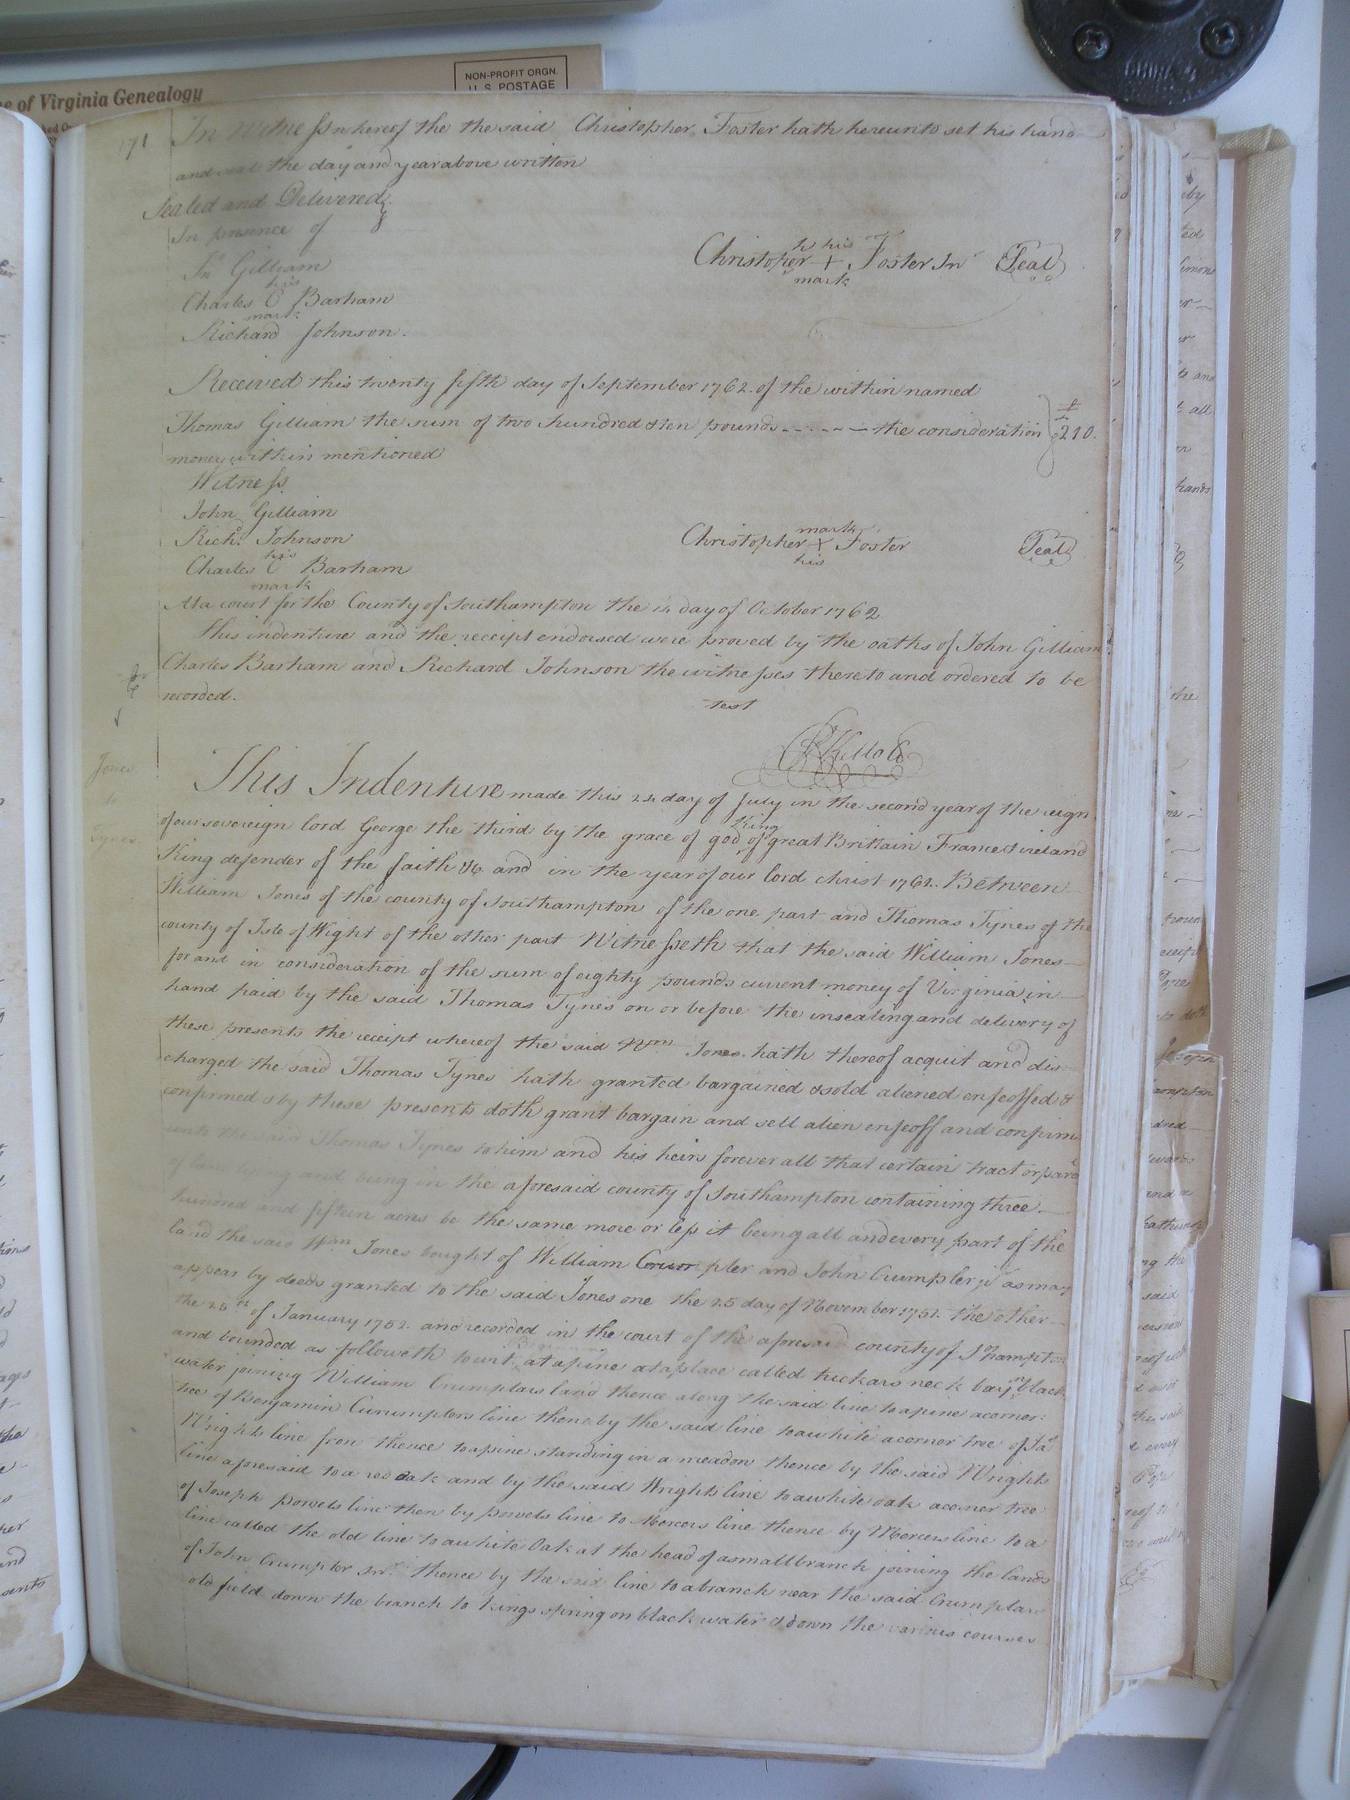 NON-PROFIT ORGN.
U.S. POSTAGE
of Virginia Genealogy
171
In Witness whereof the the said Christopher Foster hath hereunto set his hand
and seal the day and year above written
Sealed and Delivered
In presence of
Jno Gilliam
his
Charles C Barham
mark
Richard Johnson.
his
Christopher + Foster Jnr Seal
mark
Received this twenty fifth day of September 1762. of the within named
Thomas Gilliam the sum of two hundred & ten pounds ------ the consideration £ 210.
money within mentioned
Witness
John Gilliam
Richd. Johnson
his
Charles C Barham
mark
mark
Christopher + Foster Seal
his
At a court for the County of Southampton the 14 day of October 1762
This indenture and the receipt endorsed were proved by the oaths of John Gilliam
Charles Barham and Richard Johnson the witnesses thereto and ordered to be
recorded.
test
R Kello C
Jones
to
Tynes
This Indenture made this 24 day of July in the second year of the reign
of our sovereign lord George the third by the grace of god King of great Brittain Frame & ireland
King defender of the faith &c and in the year of our lord christ 1762. Between
William Jones of the county of Southampton of the one part and Thomas Tynes of the
county of Isle of Wight of the other part Witnesseth that the said William Jones
for and in consideration of the sum of eighty pounds current money of Virginia in
hand paid by the said Thomas Tynes on or before the insealing and delivery of
these presents the receipt whereof the said Wm Jones hath thereof acquit and dis
charged the said Thomas Tynes hath granted bargained & sold aliened enfeoffed &
confirmed & by these presents doth grant bargain and sell alien enfeoff and confirm
unto the said Thomas Tynes to him and his heirs forever all that certain tract or parcl
of land lying and being in the aforesaid county of Southampton containing three
hundred and fifteen acres be the same more or less it being all and every part of the
land the said Wm Jones bought of William pler and John Crumpler jr as may
appear by deeds granted to the said Jones one the 25 day of November 1751. the other
the of January 1752. and recorded in the court of the aforesaid county of Shampton
and bounded as followeth to wit, Beginning at a pine at a place called hickars neck on black
water joining William Crumplars land thence along the said line to a pine a corner
tree of Benjamin Crumplers line thence by the said line to a white a corner tree of Jas
Wrights line from thence to a pine standing in a meadow thence by the said Wrights
line aforesaid to a red oak and by the said Wrights line to a white oak a corner tree
of Joseph powels line then by powels line to Mercers line thence by Mercers line to a
line called the old line to a white Oak at the head of a small branch joining the lands
of John Crumpler snr. thence by the said line to a branch near the said Crumplars
old field down the branch to kings spring on black water & down the various courses